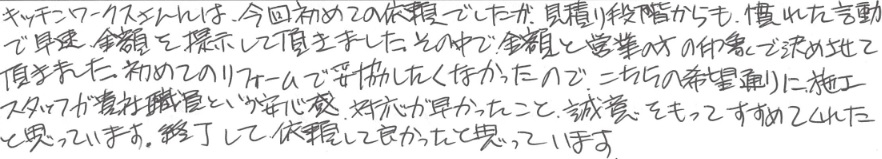 キッチンワークスさんは、今回初めての依頼でしたが、見積り段階からも、慣れた言動
で早速、金額を提示して頂きました。その中で金額と営業の方の印象で決めさせて
頂きました。初めてのリフォームで妥協したくなかったので、こちらの希望通りに、施工
スタッフが貴社職員という安心感、対応が早かったこと、誠意をもってすすめてくれた
と思っています。終了して、依頼して良かったと思っています。